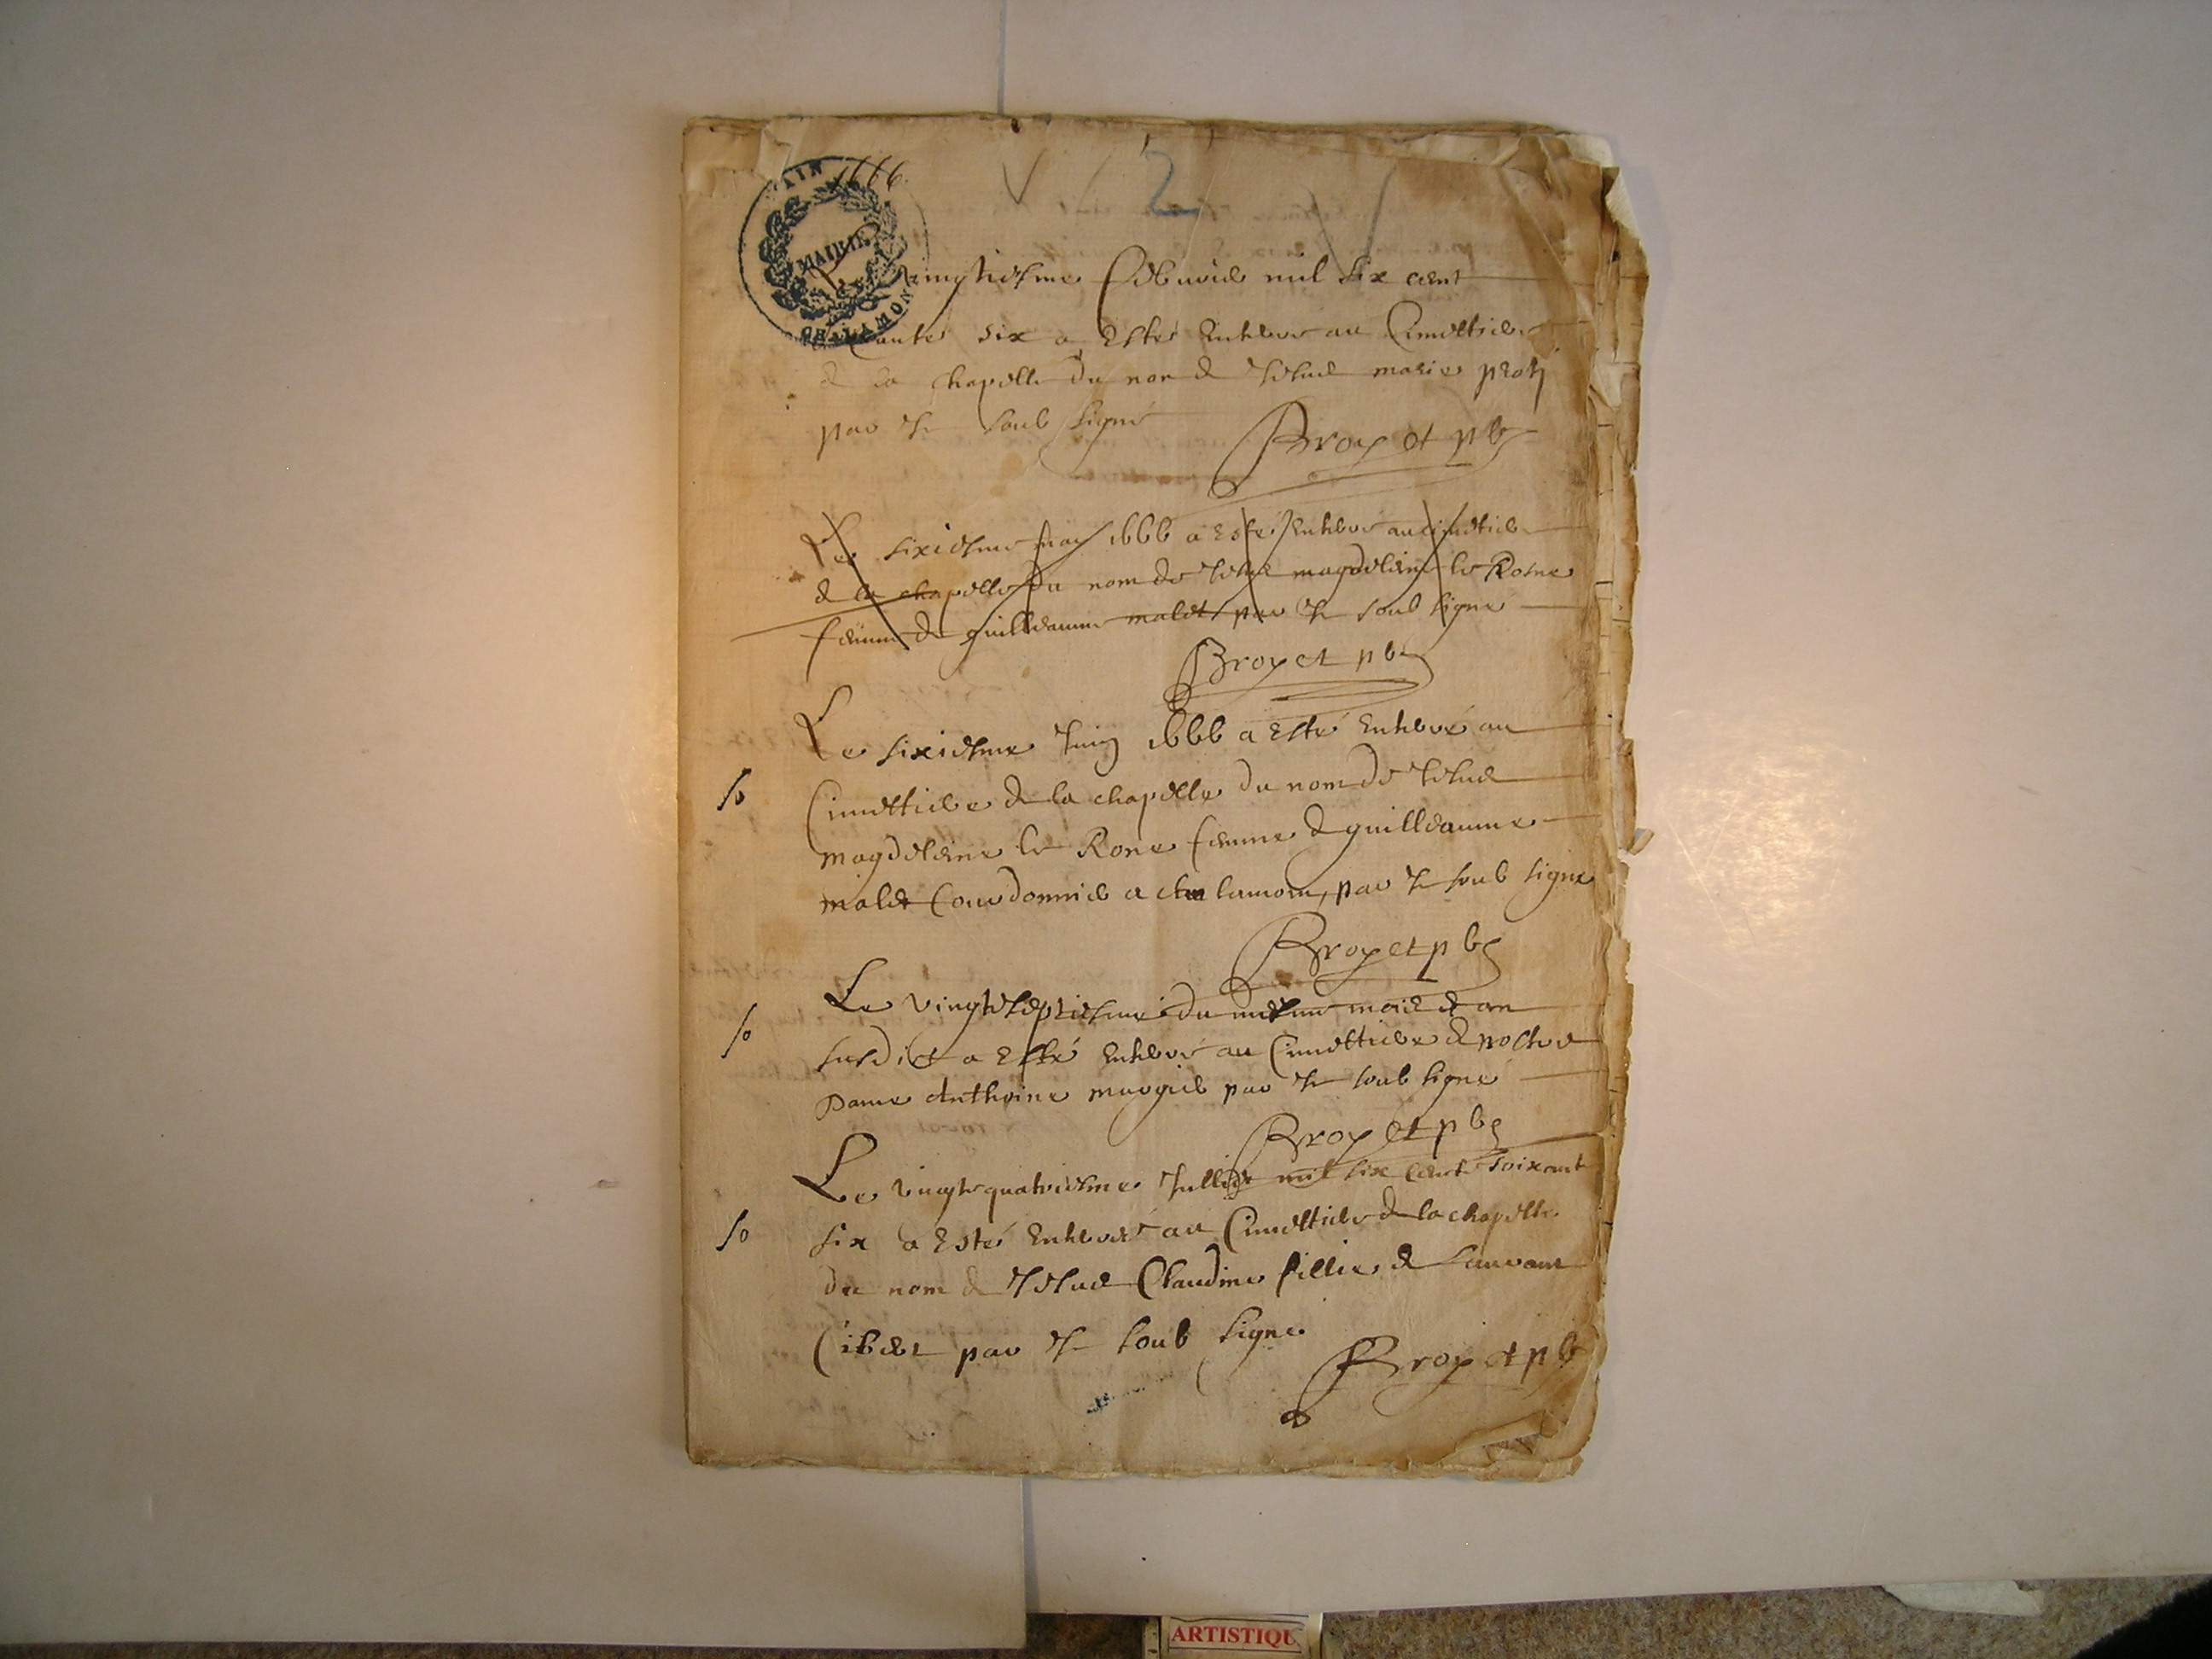 1666
2
AIN
MAIRIE
CHALAMONT
Le vingtiesme febvrier mil six cent
six a esté enterré au Cimettiere
de la chapelle du nom de Jesus marie
par Je soub signé
Broyet pbr
Le sixiesme 1666 a esté enterré au cimettiere
de la chapelle du nom de Jesus magdeleine le Rone
femme de guilleaume malet par Je soub signé
Broyet pbr
Le sixiesme Juing 1666 a esté enterré au
Cimettiere de la chapelle du nom de Jesus
magdeleine le Rone femme de guilleaume
malet Courdonnier a chalamont, par Je soub signé
Broyet pbr
Le vingt septiesme du mesme mois et an
susdict a esté enterré au Cimettiere de nostre
Dame Anthoine par Je soub signé
Broyet pbr
Le vingt quatriesme Julliet mil six cent soixant
six a esté enterré au Cimettiere de la chapelle
du nom de Jesus Claudine fillie de
par Je soub signé
Broyet pbr
ARTISTIQU